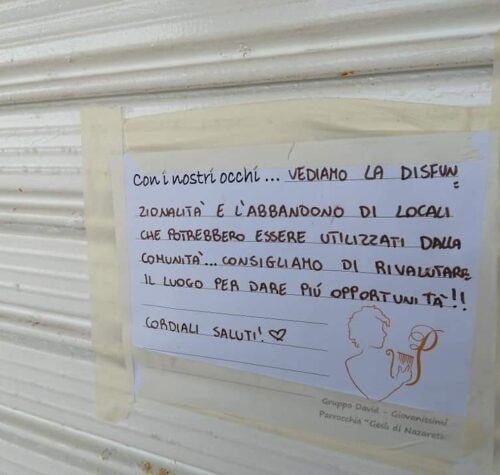 Con i nostri occhi ... VEDIAMO LA DISFUN
ZIONALITÀ E L'ABBANDONO DI LOCALI
CHE POTREBBERO ESSERE UTILIZZATI DALLA
COMUNITÀ... CONSIGLIAMO DI RIVALUTARE
IL LUOGO PER DARE PIÚ OPPORTUNITÀ!!
CORDIALI SALUTI! ♡
Gruppo David - Giovanissimi
Parrocchia "Gesù di Nazaret"